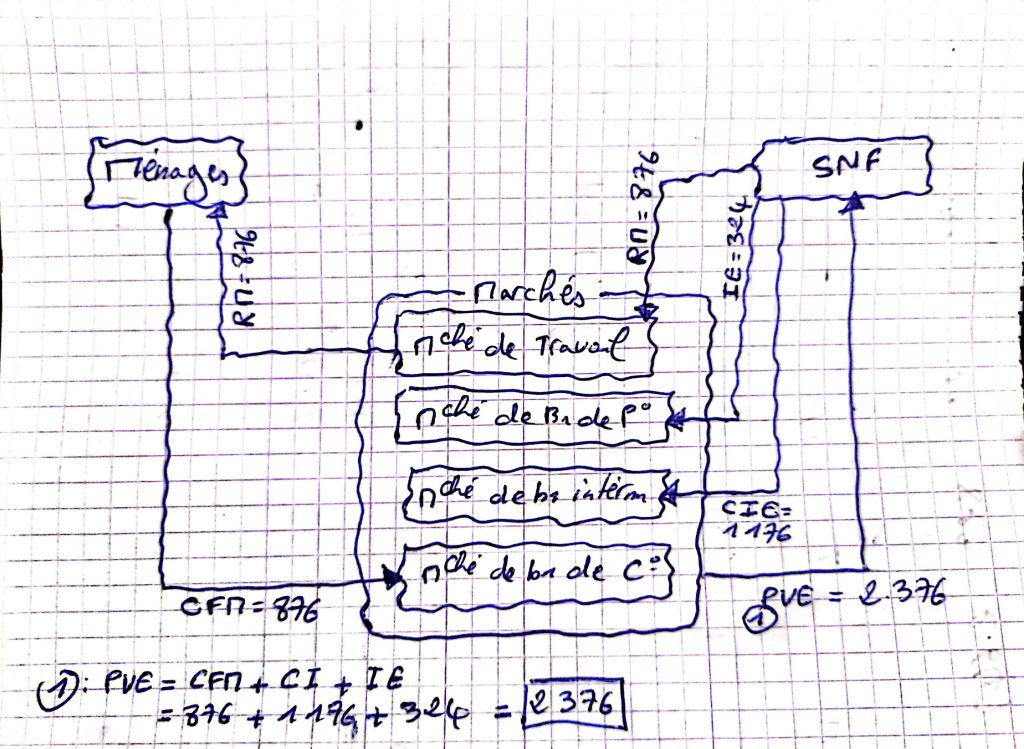 Ménages
SNF
RM = 876
RM = 876
IE = 324
Marchés
Mché de Travail
Mché de Bs de P°
Mché de bs interm
CIE =
1176
Mché de bs de C°
CFM = 876
PVE = 2.376
①
①: PVE = CFM + CI + IE
= 876 + 1176 + 324 = 2376